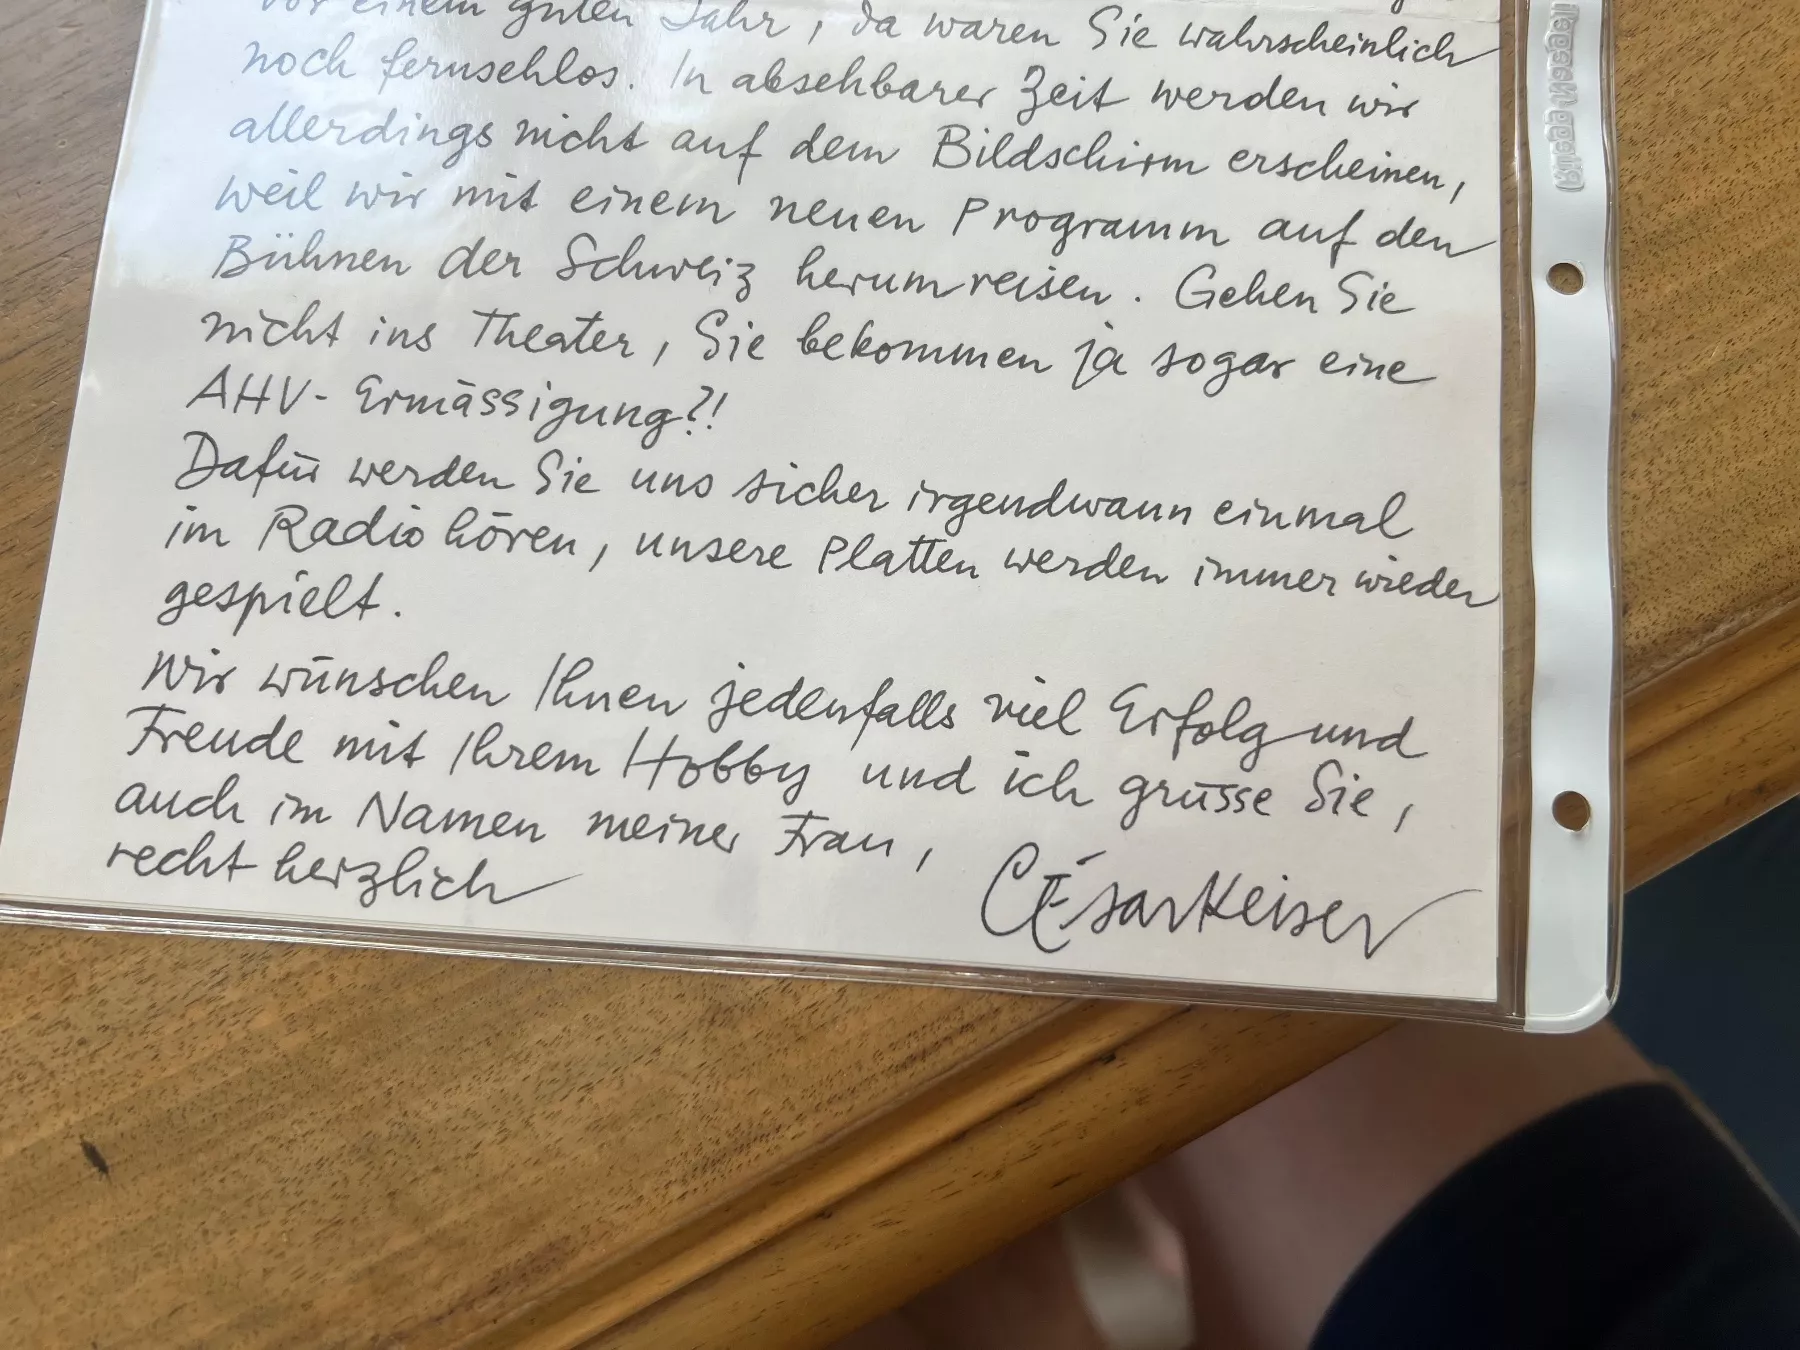 vor einem guten Jahr, da waren Sie wahrscheinlich
noch fernsehlos. In absehbarer Zeit werden wir
allerdings nicht auf dem Bildschirm erscheinen,
weil wir mit einem neuen Programm auf den
Bühnen der Schweiz herumreisen. Gehen Sie
nicht ins Theater, Sie bekommen ja sogar eine
AHV-Ermässigung?!
Dafür werden Sie uns sicher irgendwann einmal
im Radio hören, unsere Platten werden immer wieder
gespielt.
Wir wünschen Ihnen jedenfalls viel Erfolg und
Freude mit Ihrem Hobby und ich grüsse Sie,
auch im Namen meiner Frau,
recht herzlich
César Keiser